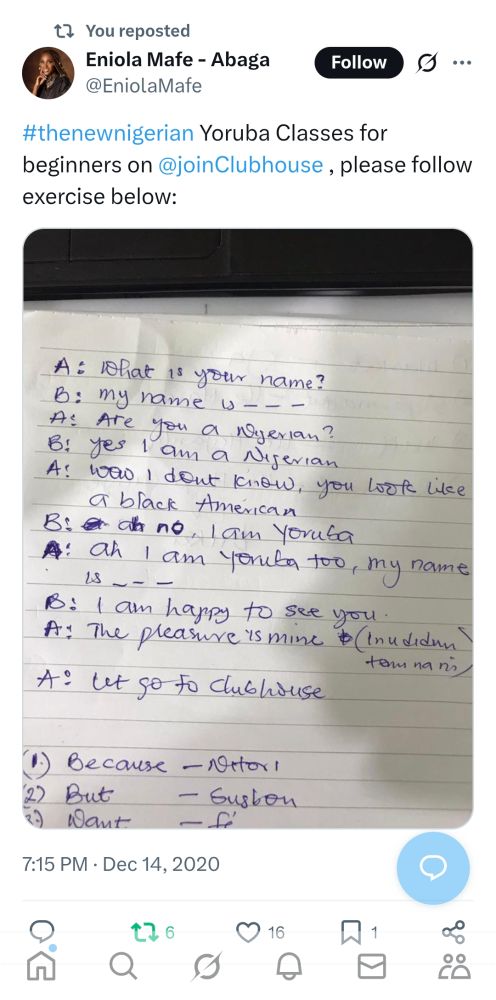 You reposted
Eniola Mafe - Abaga
@EniolaMafe
Follow
#thenewnigerian Yoruba Classes for
beginners on @joinClubhouse , please follow
exercise below:
A: What is your name?
B: my name is - - -
A: Are you a Nigerian?
B: yes I am a Nigerian
A: wow I dont know, you look like
a black American
B: ah no, I am Yoruba
A: ah I am Yoruba too, my name
is - - -
B: I am happy to see you.
A: The pleasure is mine (Inu didun
tomi na ni)
A: Let go to Clubhouse
(1.) Because - Nitori
(2) But - Sugbon
Want - fé
7:15 PM · Dec 14, 2020
6
16
1